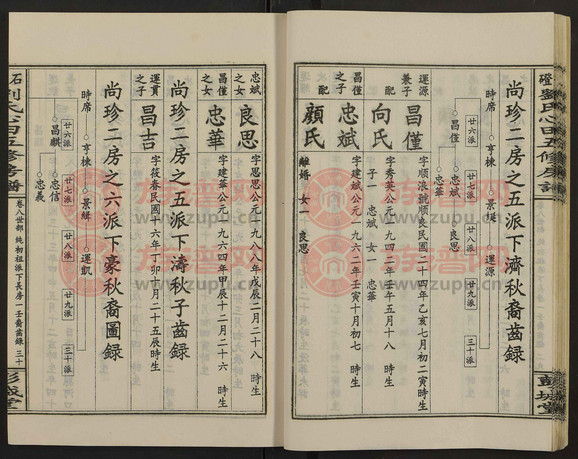 尚珍二房之五派下濟秋裔齒録
廿六派
廿七派
廿八派
廿九派
三十派
時席 亨棟 景
運源
昌僅
忠斌
忠華
良思
運源兼子
昌僅
字順浪號順良民國二十四年乙亥七月初二寅時生
配
向氏
字秀英公元一九四二年壬午五月十八 時生
子一 忠斌 女一 忠華
昌僅之子
忠斌
字建斌公元一九六二年壬寅十月初七 時生
配
顏氏
離婚 女一 良思
忠斌之女
良思
字思思公元一九八八年戊辰二月二十八 時生
昌僅之女
忠華
字建華公元一九六四年甲辰十二月二十六 時生
尚珍二房之五派下濤秋子齒録
運貫之子
昌吉
字筱春民國十六年丁卯八月二十五辰時生
尚珍二房之六派下豪秋裔圖録
廿六派
廿七派
廿八派
廿九派
三十派
時席 亨棟 景 運凱
昌麒
忠信
忠義
卷八世部 純初祖派下長房一壬裔齒録 三十
彭城堂
www.zupu.cn